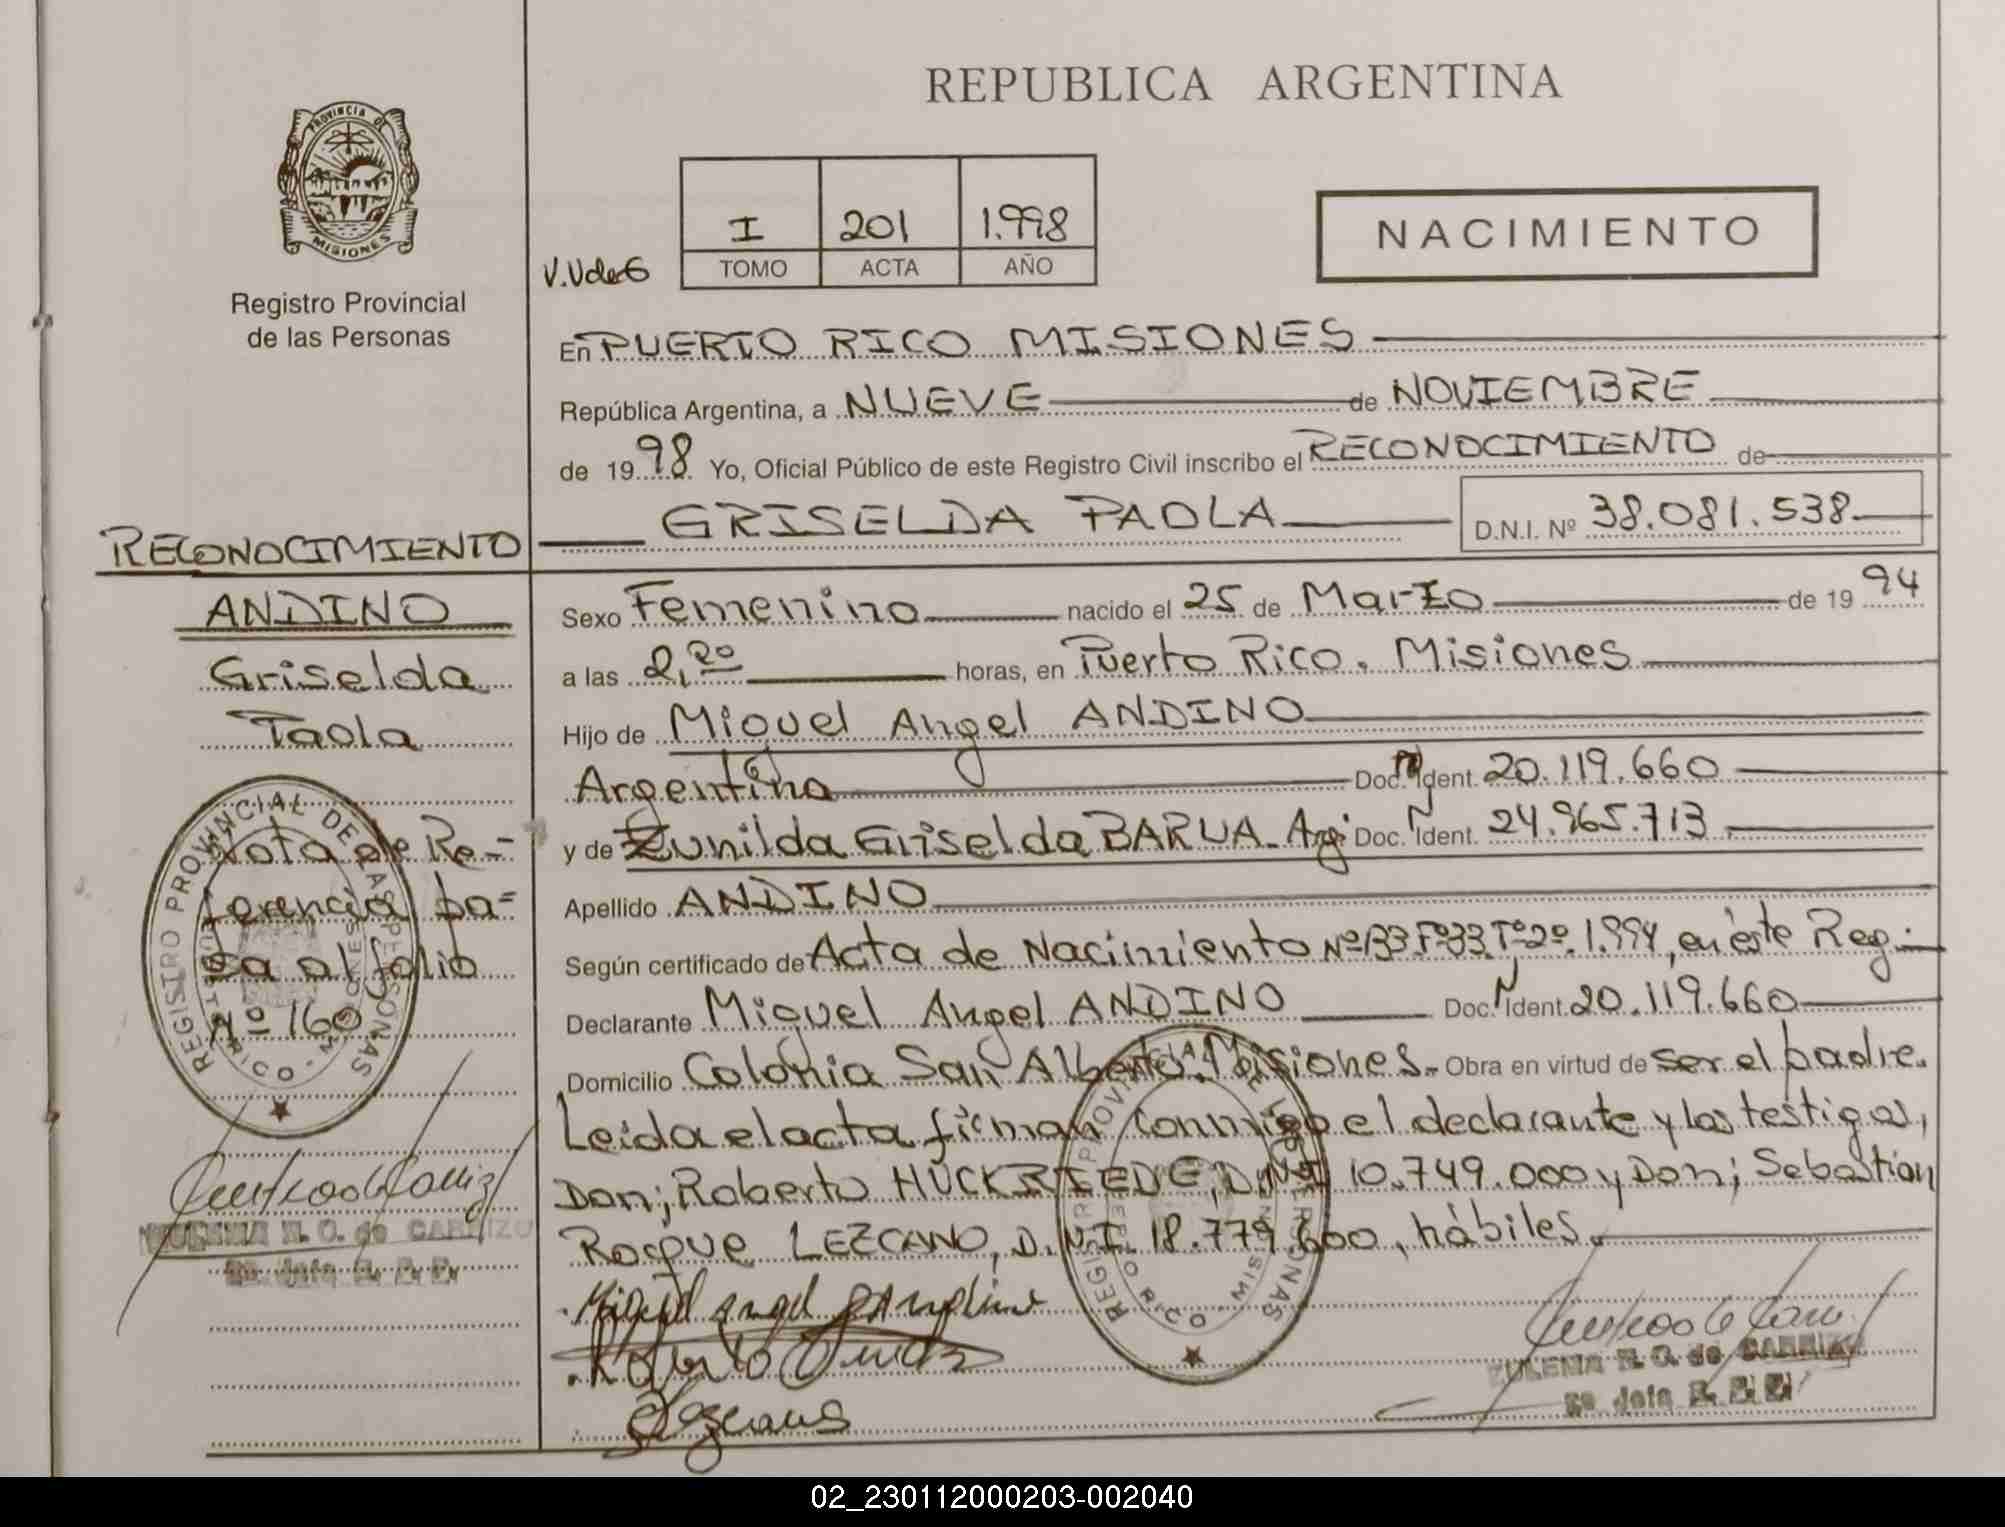 REPUBLICA ARGENTINA
PROVINCIA DE
MISIONES
Registro Provincial
de las Personas
V.Vde6
I 201 1.998
TOMO ACTA AÑO
NACIMIENTO
En PUERTO RICO MISIONES
República Argentina, a NUEVE de NOVIEMBRE
de 1998 Yo, Oficial Público de este Registro Civil inscribo el RECONOCIMIENTO de
GRISELDA PAOLA D.N.I. Nº 38.081.538
RECONOCIMIENTO
ANDINO
Griselda
Paola
Nota de Re=
ferencia pa=
sa al folio
Nº 160
REGISTRO PROVINCIAL DE LAS PERSONAS
EULENIA N. O. de CARRIZO
Sexo Femenino nacido el 25 de Marzo de 1994
a las 2,20 horas, en Puerto Rico. Misiones
Hijo de Miguel Angel ANDINO
Argentina Doc. Ident. 20.119.660
y de Zunilda Griselda BARUA. Arg. Doc. Ident. 24.965.713
Apellido ANDINO
Según certificado de Acta de Nacimiento Nº 133.Fº33.Tº2º.1.994, en éste Reg.
Declarante Miguel Angel ANDINO Doc. Ident. 20.119.660
Domicilio Colonia San Alberto. Misiones. Obra en virtud de ser el padre.
Leida el acta firman conmigo el declarante y los testigos,
Don; Roberto HUCKRIEDE, D.N.I 10.749.000 y Don; Sebastian
Roque LEZCANO, D.N.I. 18.779.600, hábiles.
Miguel Angel
Roberto
Lezcano
REGISTRO PROVINCIAL DE LAS PERSONAS
PUERTO RICO - MISIONES
EULENIA N. O. de CARRIZO
02_230112000203-002040